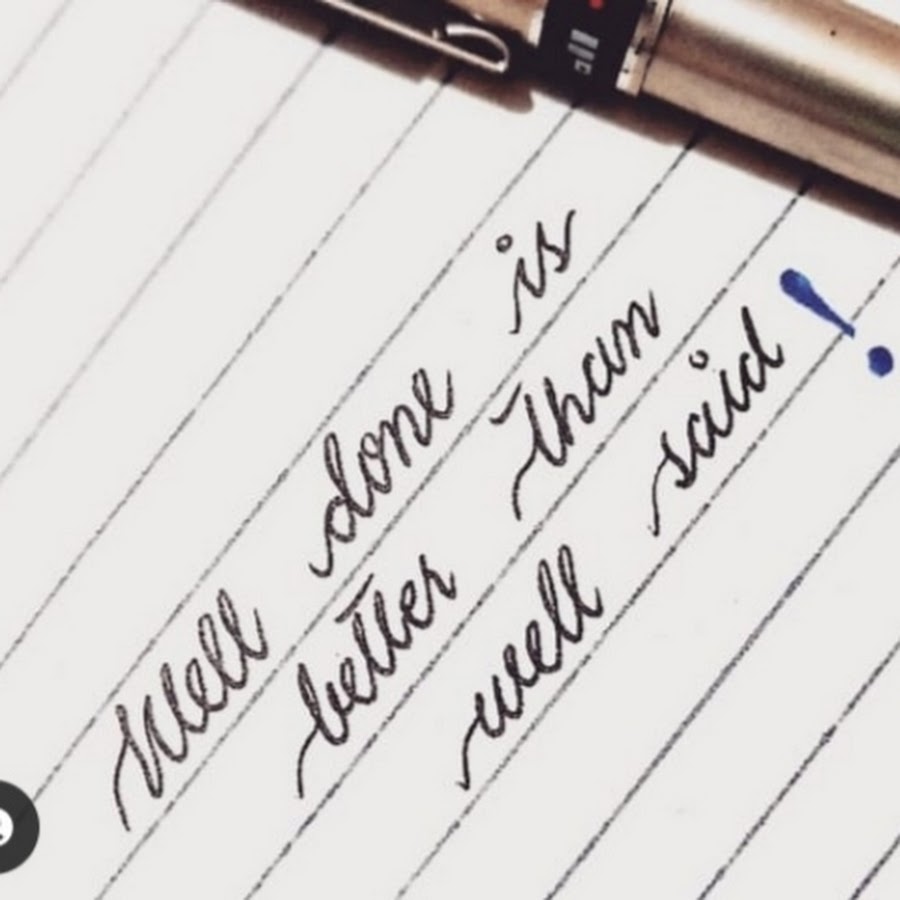 Well done is
better than
well said!